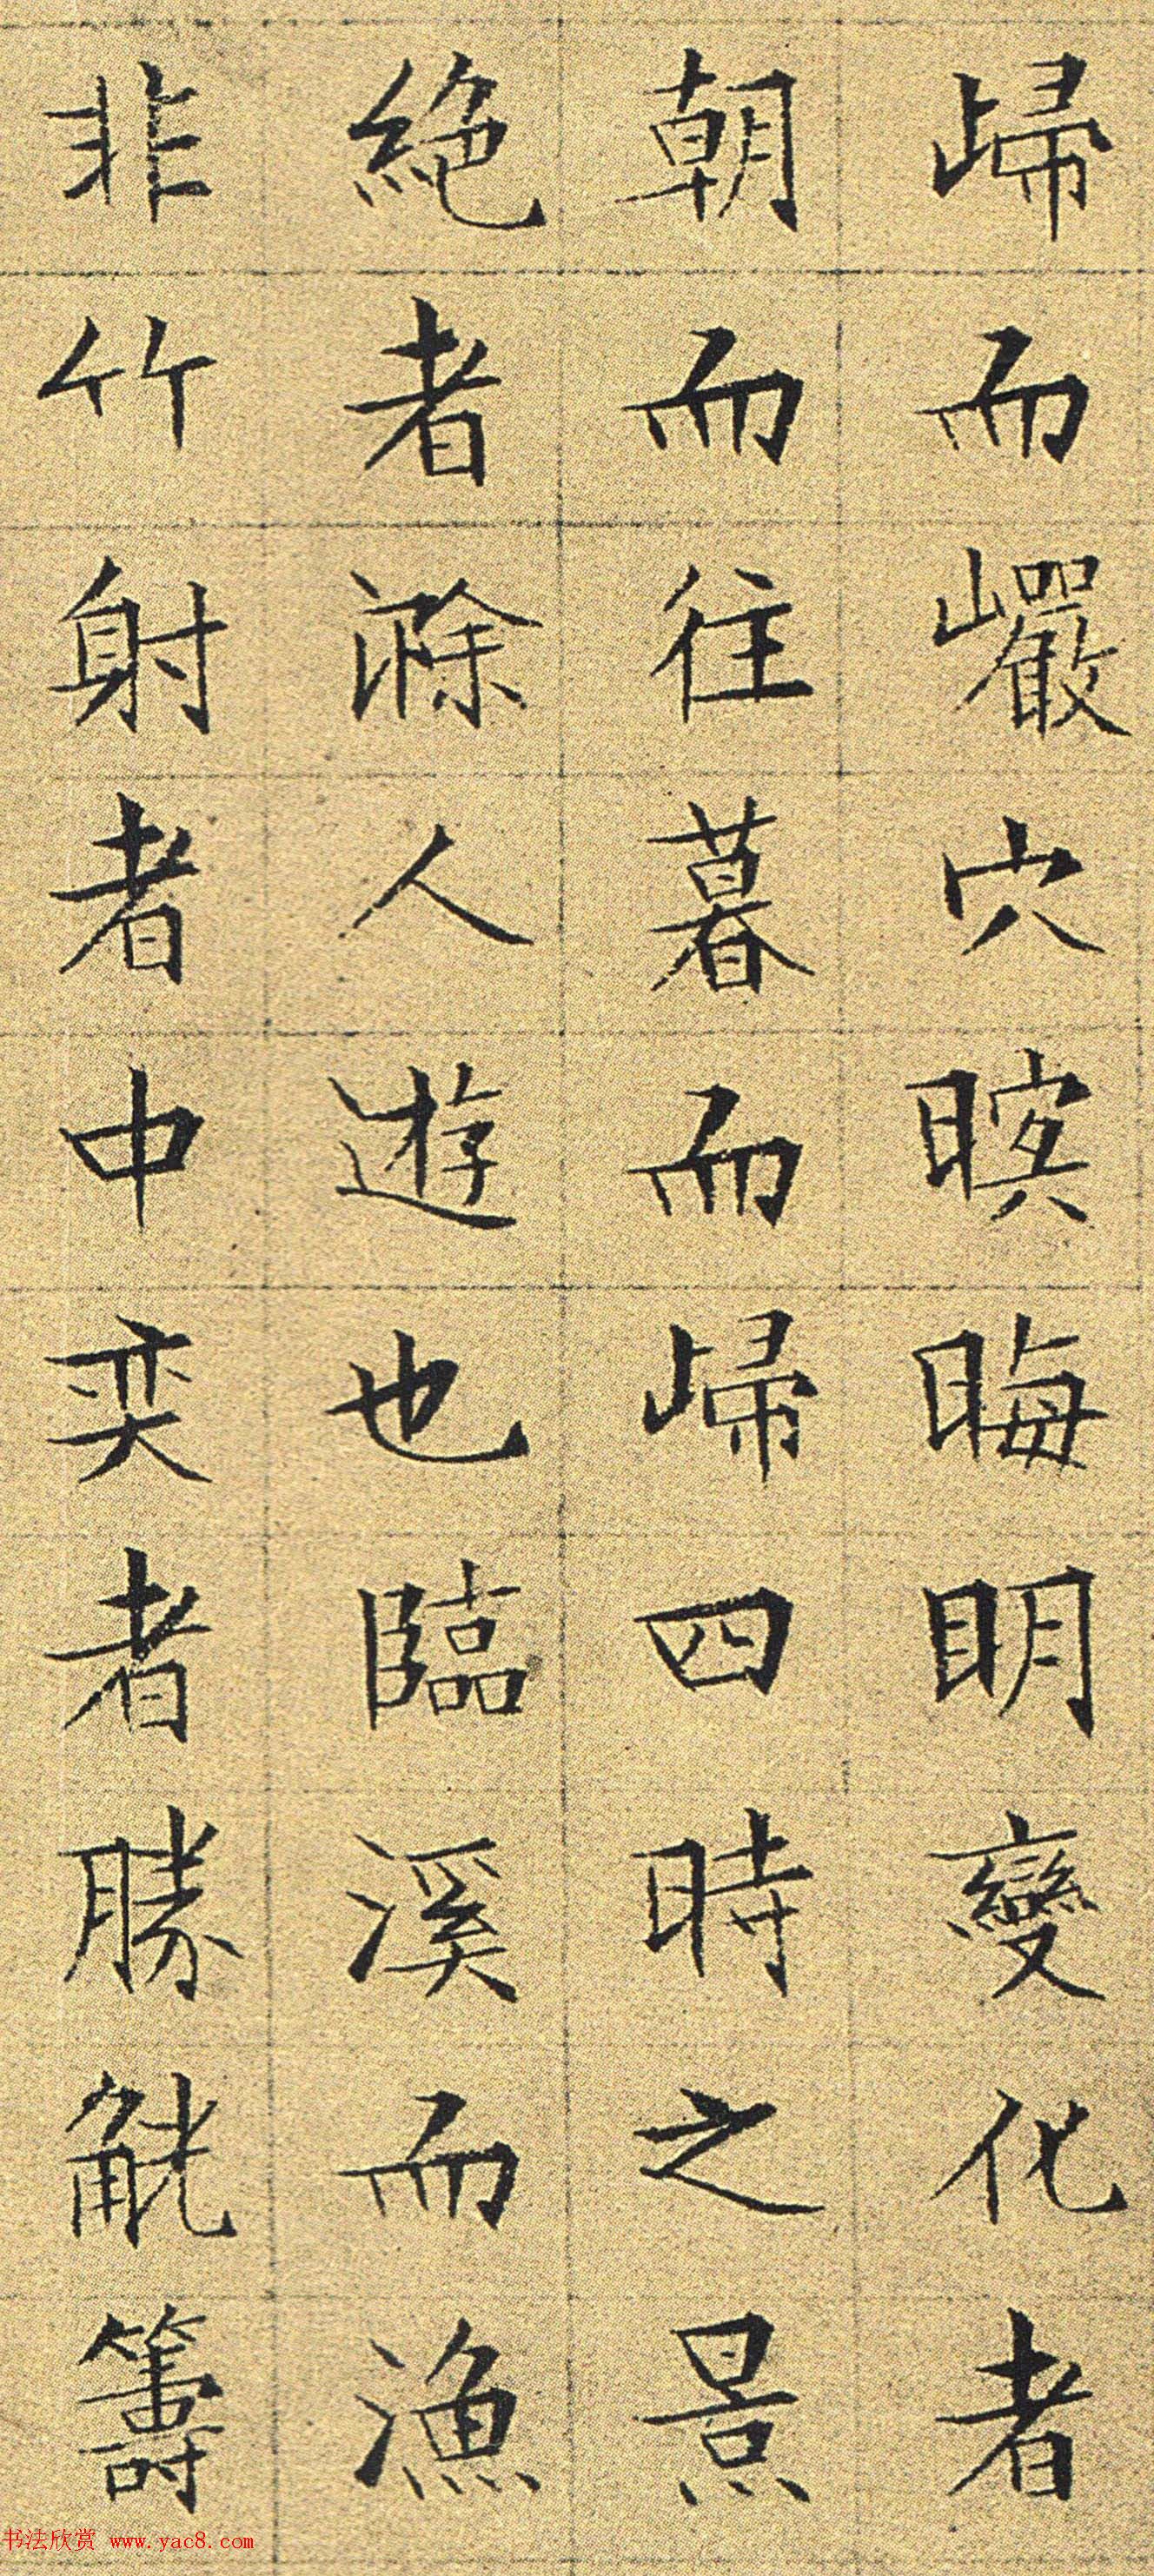 歸而巖穴暝晦明變化者
朝而往暮而歸四時之景
絶者滁人遊也臨溪而漁
非竹射者中奕者勝觥籌
书法欣赏 www.yac8.com